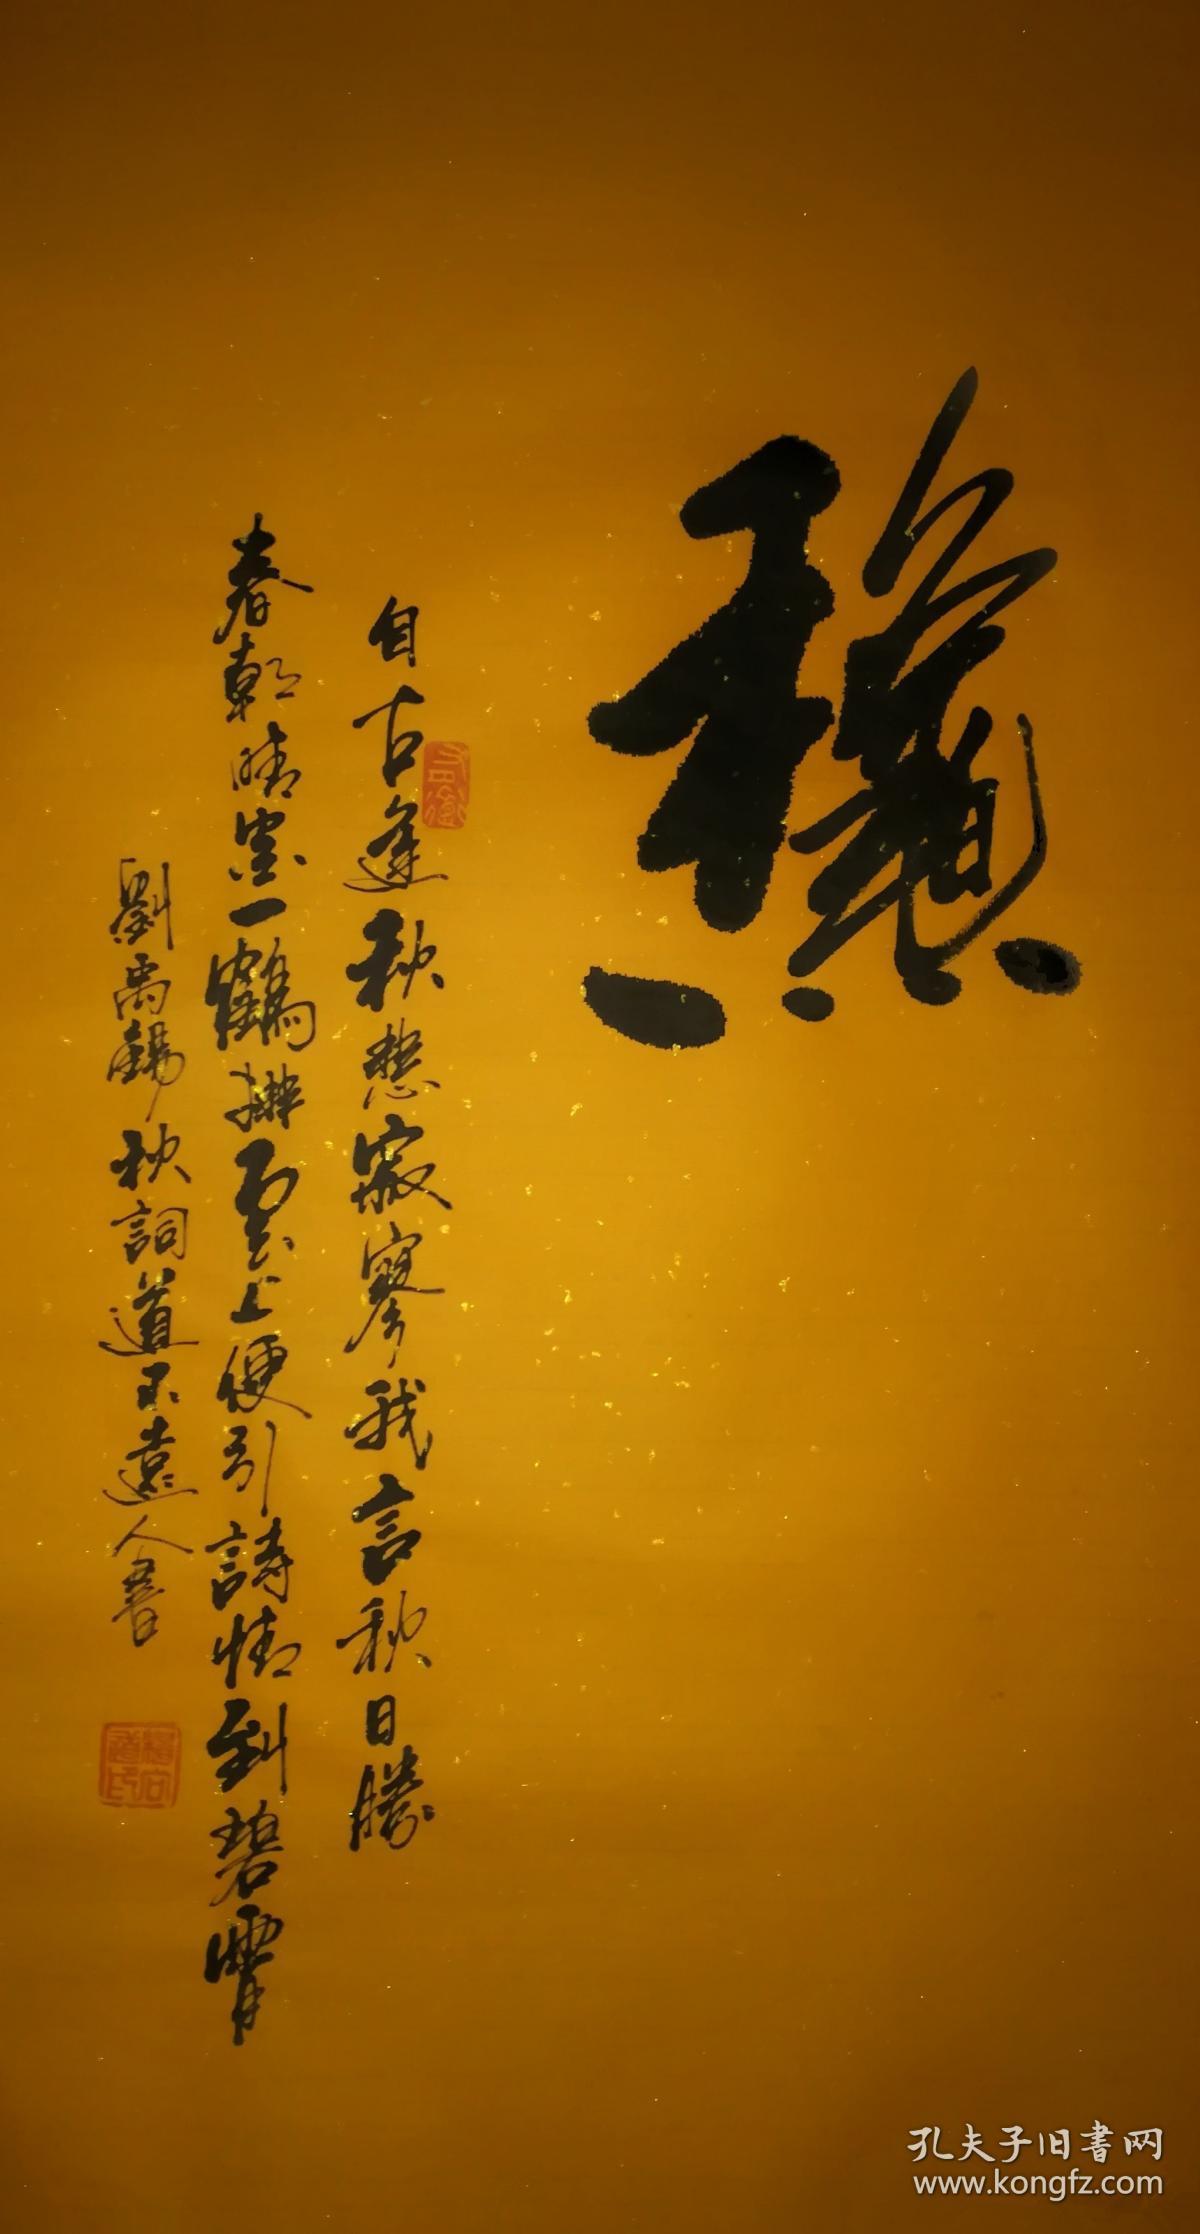 龝
自古逢秋悲寂寥我言秋日勝
春朝晴空一鶴排雲上便引詩情到碧霄
劉禹錫秋詞道不遠人書
孔夫子旧書网
www.kongfz.com